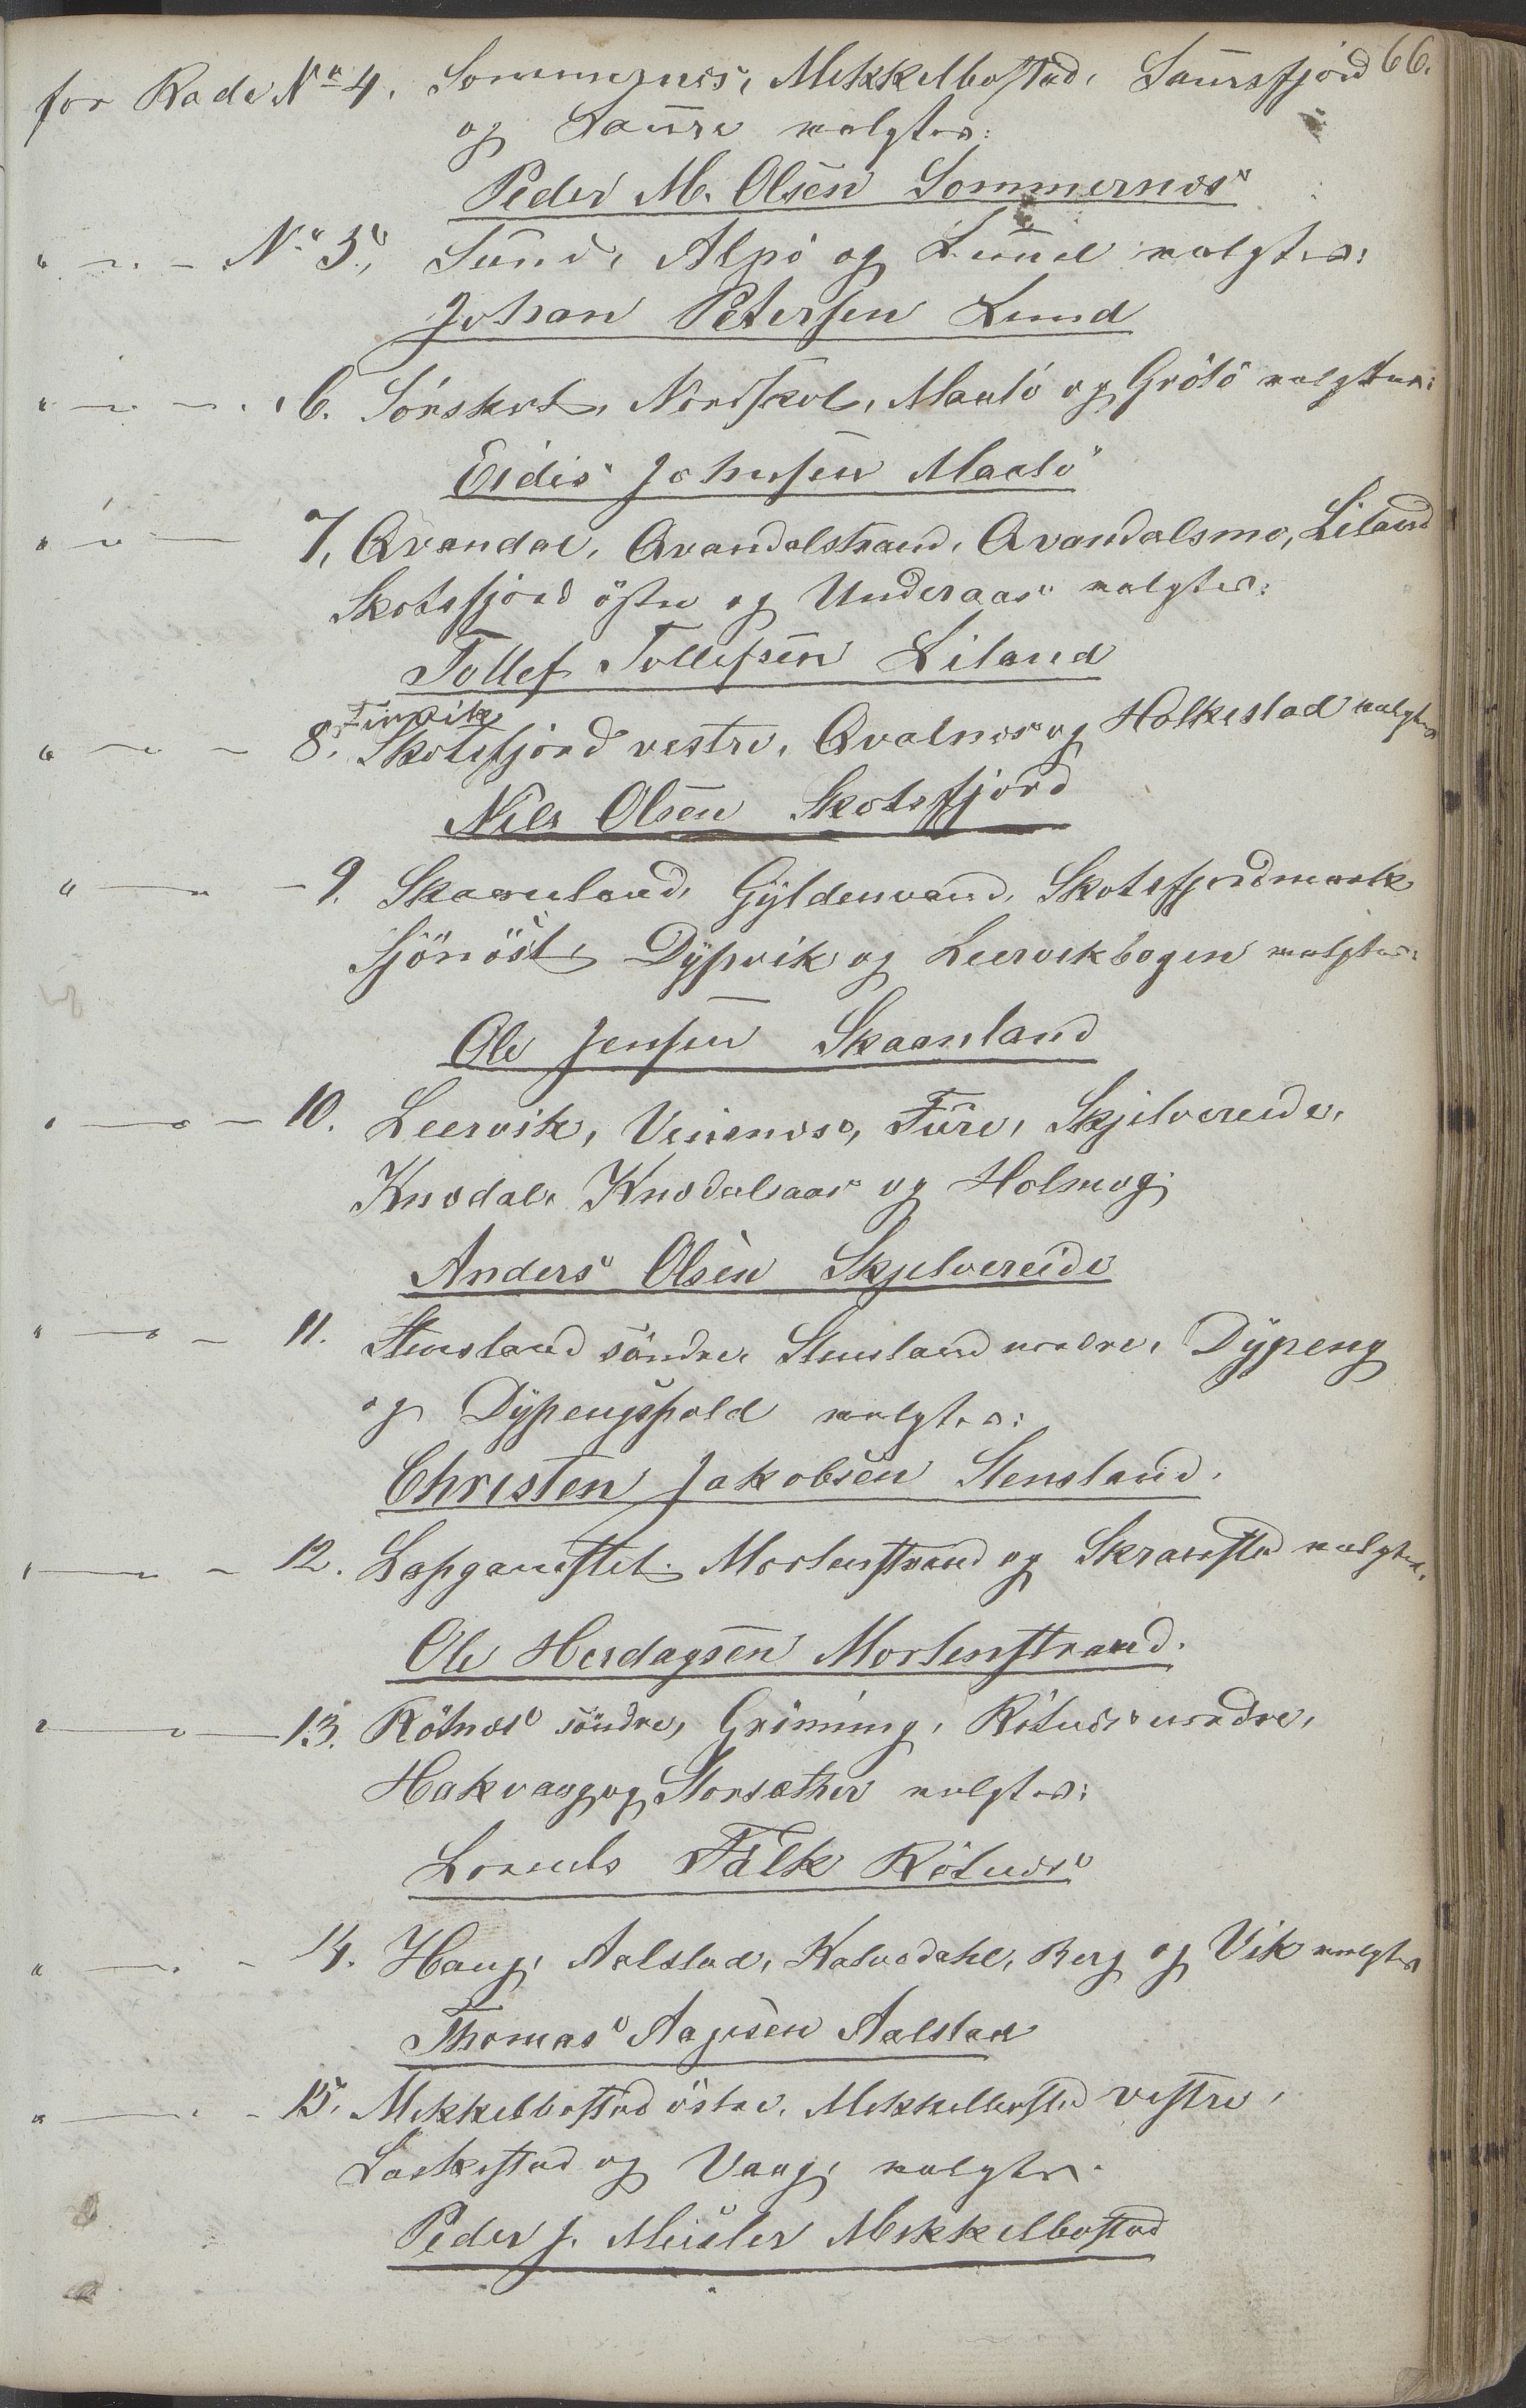 66.
for Rode No 4. Sommernes, Mikkelbostad, Saursfjord
og Saure valgtes:
Peder M. Olsen Sommernes
" — " — No 5, Sund, Alpö og Lund valgtes:
Johan Petersen Lund
" — " — " 6. Sörskot, Nordskot, Maalö og Grötö valgtes:
Eidis Johnsen Maalö
" — " — 7, Qvandal, Qvandalstrand, Qvandalsmo, Liland
Skotsfjord östre og Underaas valgtes:
Tollef Tollefsen Liland
Finvik
" — " — 8. Skotsfjord vestre, Qvalnes og Holkestad valgtes
Nils Olsen Skotsfjord
" — " — 9. Skaanland, Gyldenvand, Skotsfjordmark
Sjönöst, Dypvik og Leervikbogen valgtes:
Ole Jensen Skaanland
" — " — 10. Leervik, Veinnes, Fure, Skjelvereide,
Knedal, Knedalsaas og Holmog;
Anders Olsen Skjelvereide
" — " — 11. Stensland söndre, Stensland nordre, Dypeng
og Dypengspold valgtes:
Christen Jakobsen Stensland.
" — " — 12. Mortenstrand og Skraastad valgtes.
Ole Herdagsen Mortenstrand.
" — " — 13. Rötnes söndre, Gröning, Rötnes nordre,
Hakvaag og Storsæther valgtes:
Lorents Falk Rötnes
" — " — 14. Haug, Aalstad, Kalvedahl, Berg og Vik valgtes
Thomas Aagesen Aalstad
" — " — 15. Mikkelbostad östre, Mikkelbostad vestre,
Laskestad og Vaag, valgtes.
Peder J. Meisler Mikkelbostad